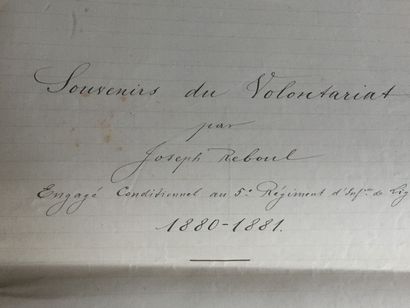 Souvenirs du Volontariat
par
Joseph Reboul
Engagé Conditionnel au 5e Régiment d'Infrie de Lig
1880-1881.